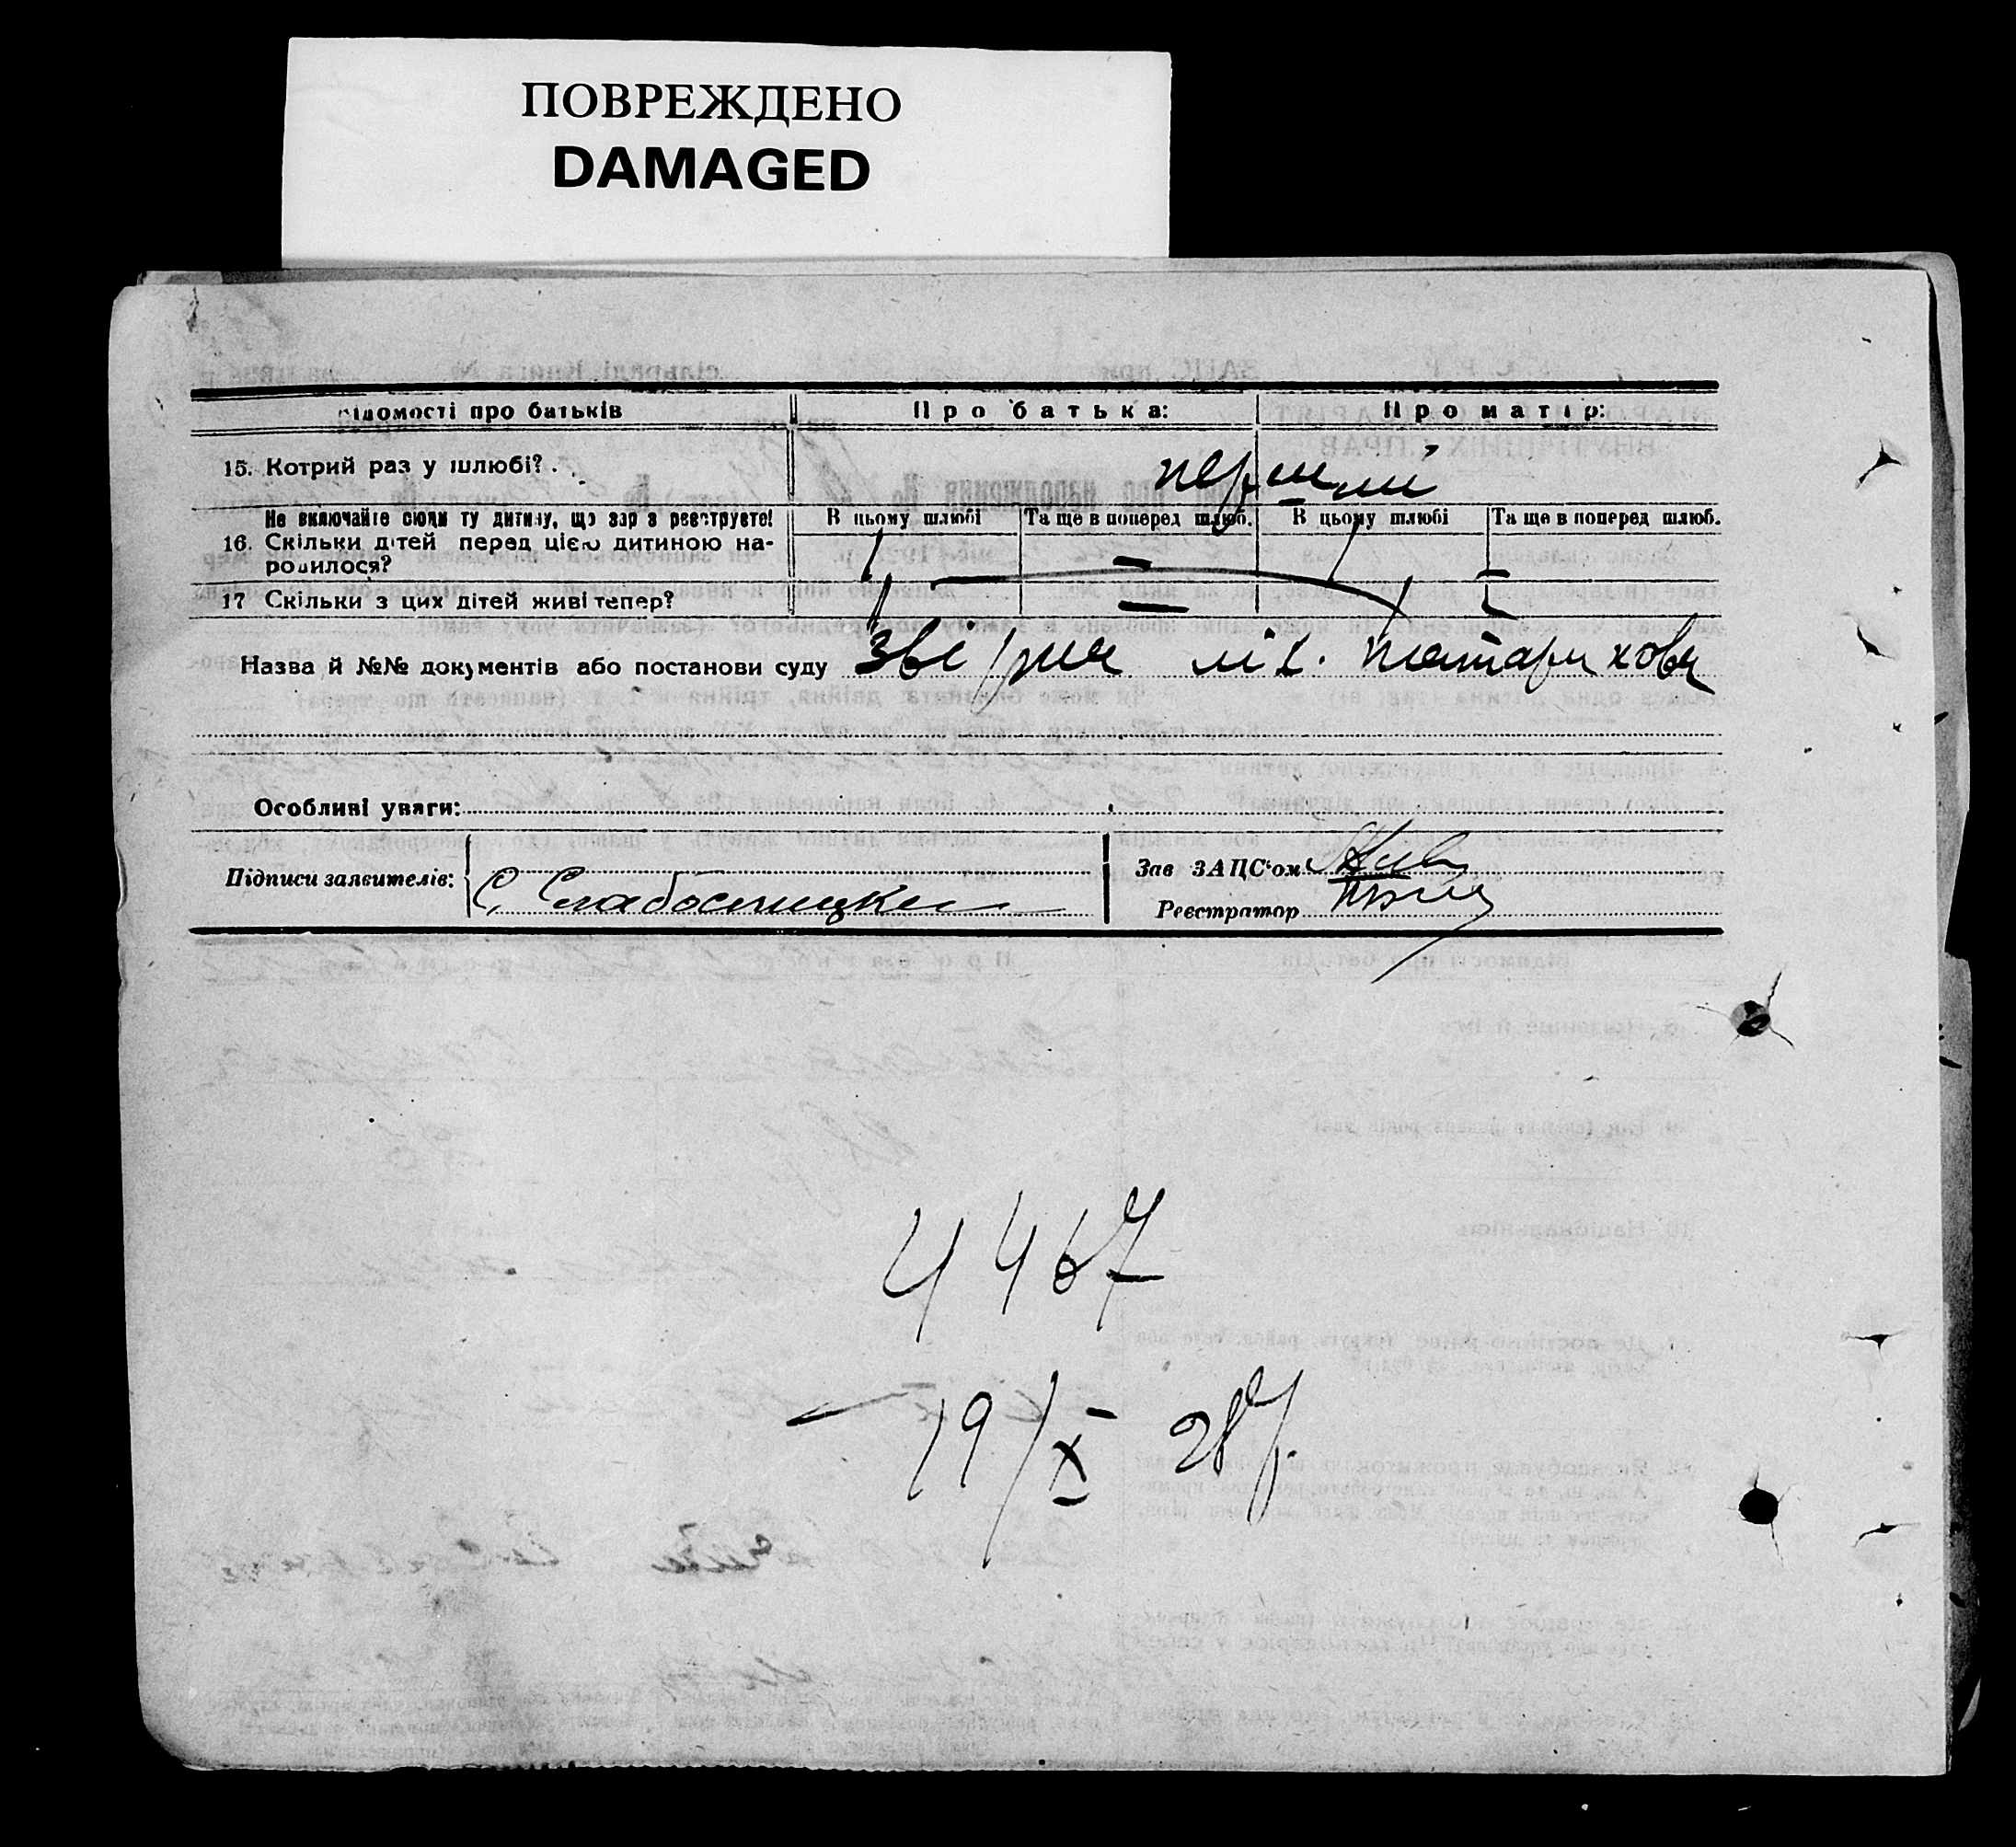 ПОВРЕЖДЕНО
DAMAGED
Відомості про батьків
Про батька:
Про матір:
15. Котрий раз у шлюбі?
перший
Не включайте сюди ту дитину, що зараз реєструєте!
16. Скільки дітей перед цією дитиною народилося?
В цьому шлюбі
Та ще в поперед шлюб.
В цьому шлюбі
Та ще в поперед шлюб.
1 — 1 —
17 Скільки з цих дітей живі тепер?
1 — 1 —
Назва й №№ документів або постанови суду
Особливі уваги:
Підписи заявителів:
С. Слабошицкий
Зав ЗАЦС'ом
Реєстратор
4467
19/X 28р.